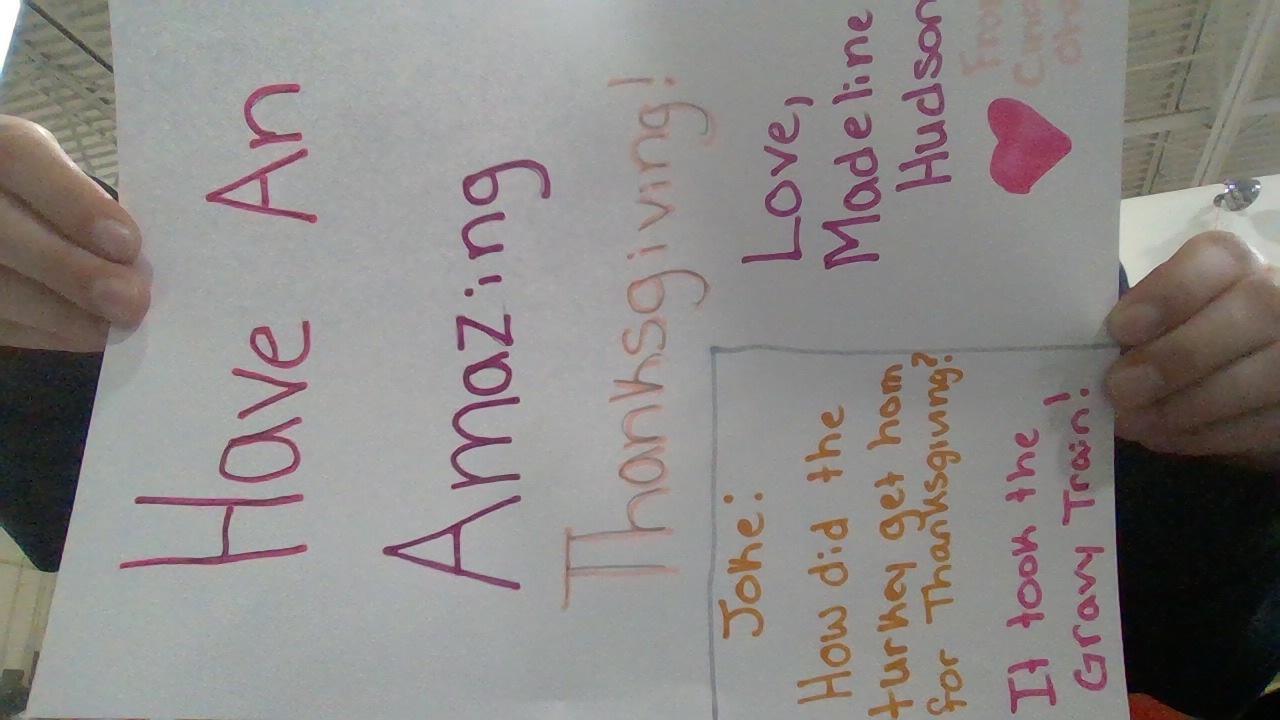 Have An
Amazing
Thanksgiving!
Love,
Madeline
Hudson
Joke:
How did the
turkey get hom
for Thanksgiving?
It took the
Gravy Train!